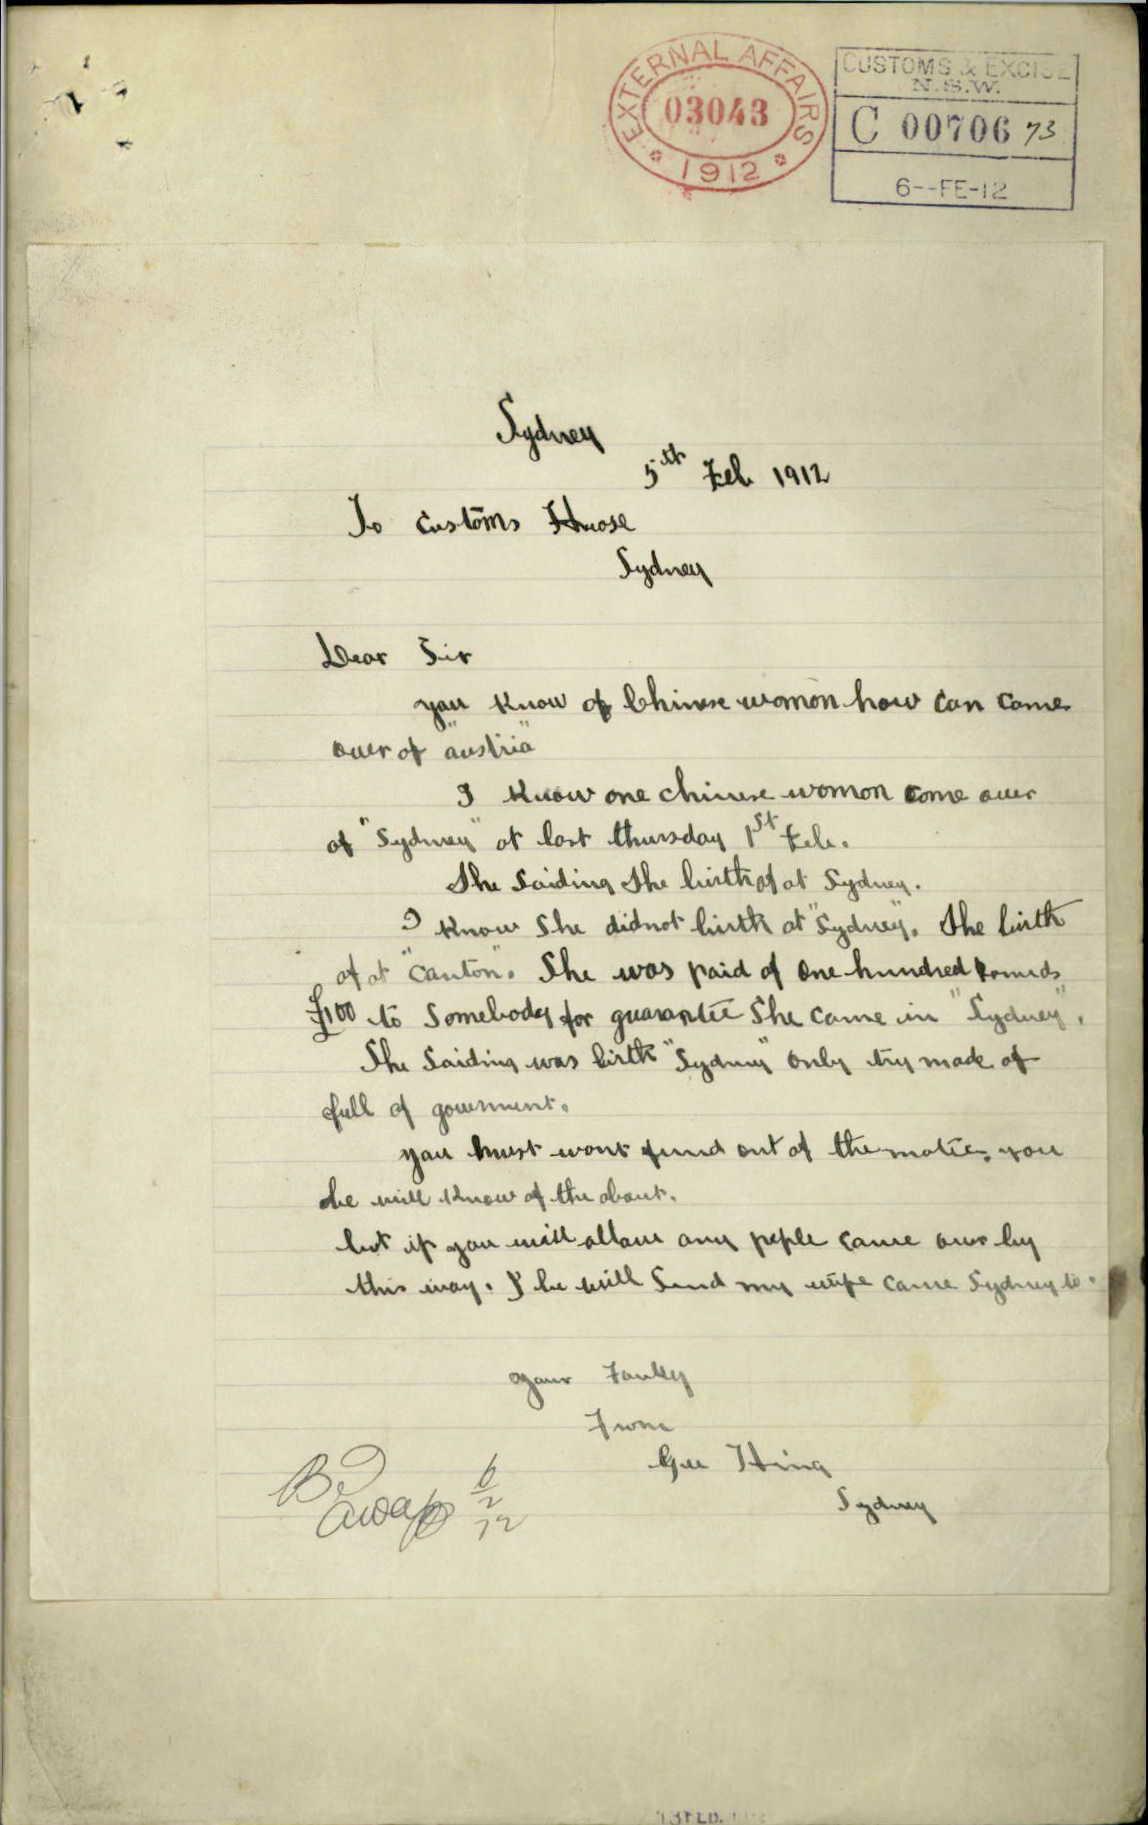 EXTERNAL AFFAIRS
03043
1912
CUSTOMS & EXCISE
N.S.W.
C 00706 73
6--FE-12
Sydney
5th Feb 1912
To Customs Huose
Sydney
Dear Sir
you know of Chinese womon how can came
over of "austria"
I know one chinese womon come over
of "Sydney" at last thursday 1st Feb.
She Saiding She birth of at Sydney.
I know She didnot birth at "Sydney". She birth
of at "Canton". She was paid of one hundred pounds
£100 to Somebody for guarantee She came in "Sydney".
She Saiding was birth "Sydney" only try made of
full of goverment.
you must want fund out of the matter, you
be will know of the about.
but if you will allow any peple came over by
this way. I be will Send my wife came Sydney to.
your
From
Gee Hing
Sydney
6
2
12